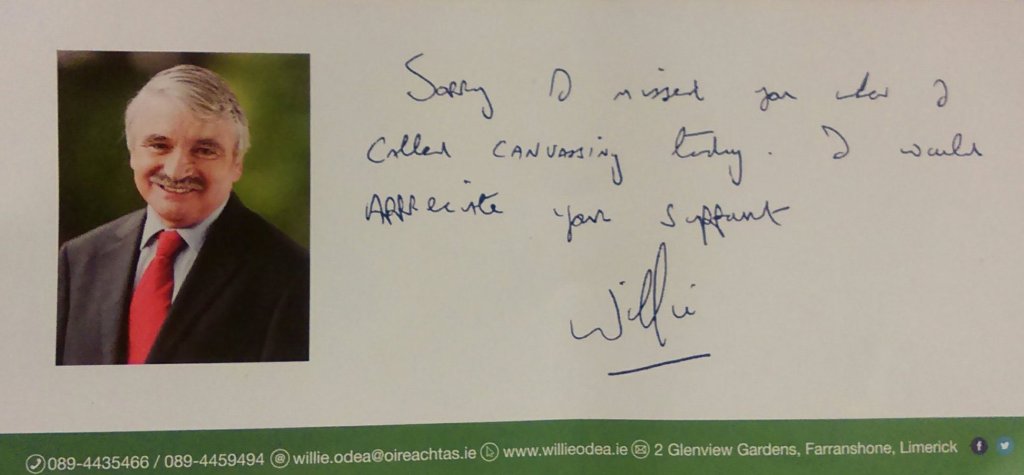 Sorry I missed you when I
called CANVASSING today. I would
APPReciate your support
Willie
089-4435466 / 089-4459494 willie.odea@oireachtas.ie www.willieodea.ie 2 Glenview Gardens, Farranshone, Limerick